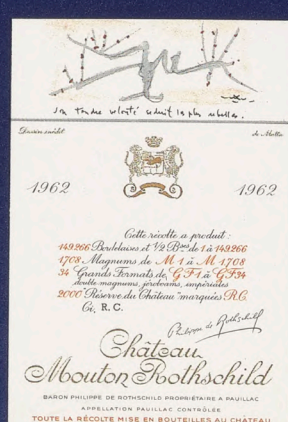 son tendre velouté séduit la plus rebelle.
Dessin inédit de Matta
1962 1962
Cette récolte a produit:
149.266 Bordelaises et 1/2 Bses de 1 à 149.266
1708 Magnums de M 1 à M 1708
34 Grands Formats de G F 1 à G F 34
double magnums, jéroboams, impériales
2000 "Réserve du Château" marquées R.C.
Ci, R.C.
Philippe de Rothschild
Château
Mouton Rothschild
BARON PHILIPPE DE ROTHSCHILD PROPRIÉTAIRE A PAUILLAC
APPELLATION PAUILLAC CONTRÔLÉE
TOUTE LA RÉCOLTE MISE EN BOUTEILLES AU CHÂTEAU